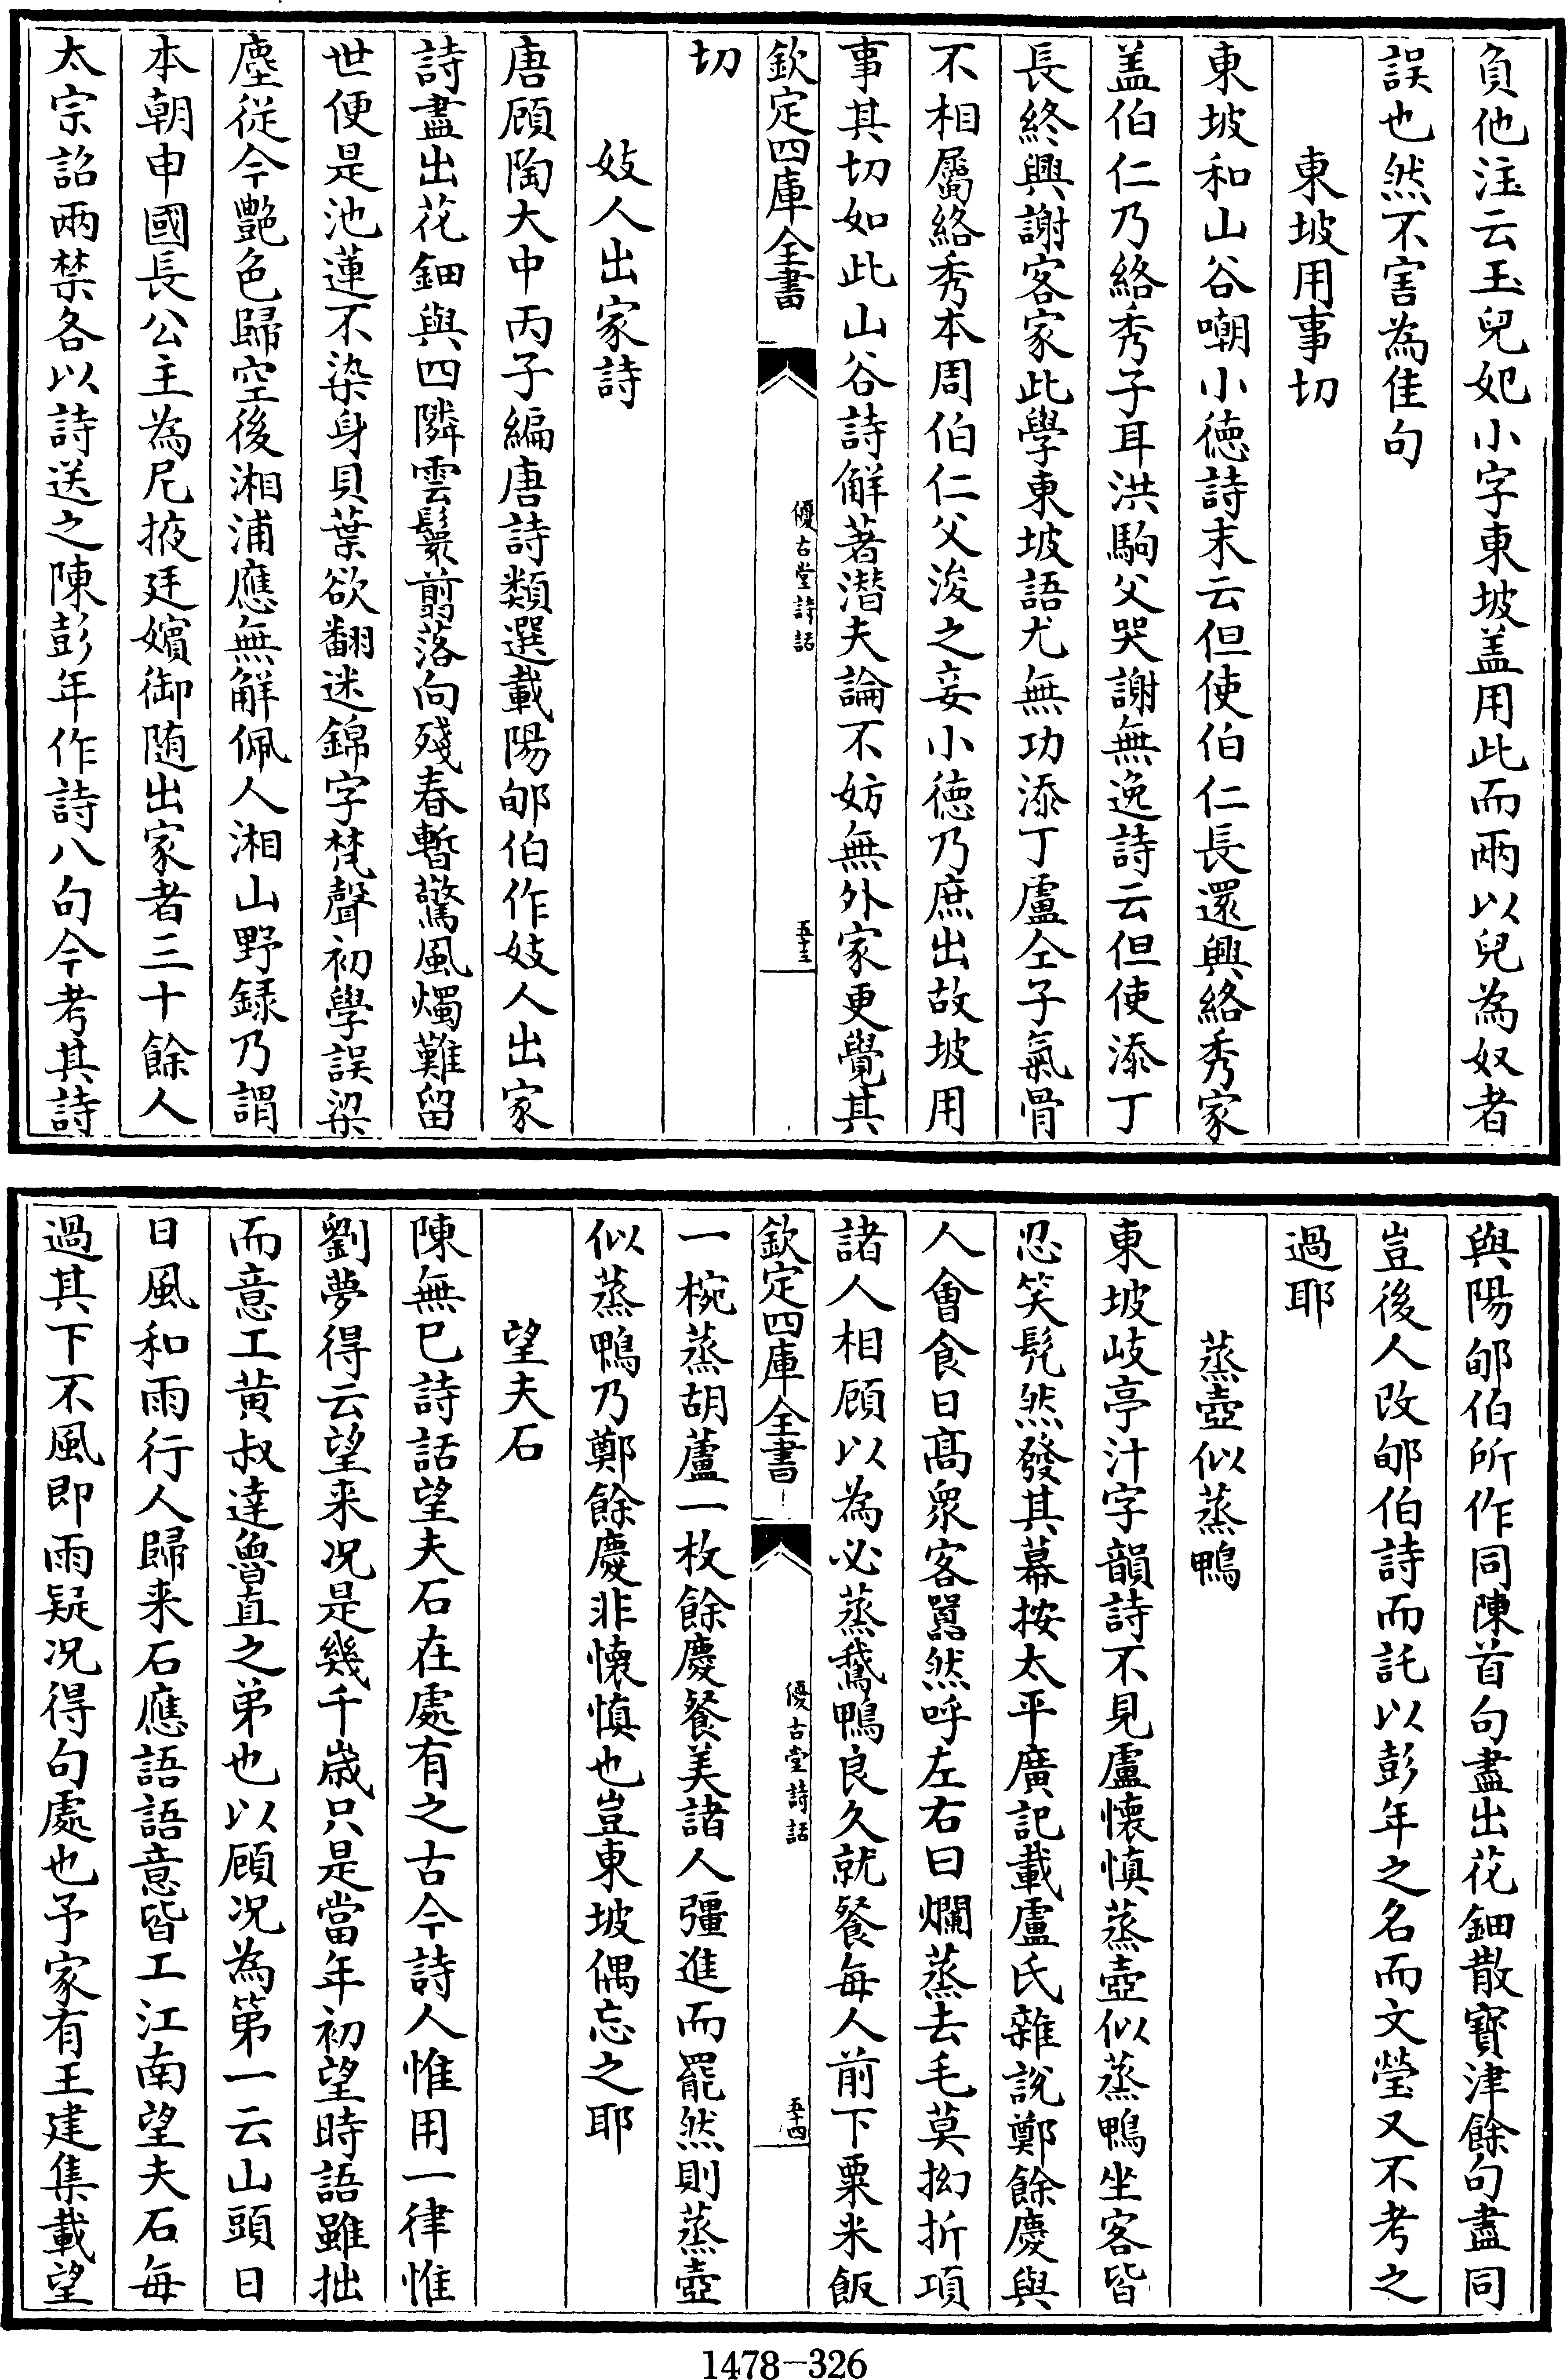 負他注云玉兒妃小字東坡盖用此而兩以兒為奴者
誤也然不害為佳句
東坡用事切
東坡和山谷嘲小徳詩末云但使伯仁長還興絡秀家
盖伯仁乃絡秀子耳洪駒父哭謝無逸詩云但使添丁
長終興謝客家此學東坡語尤無功添丁盧仝子氣骨
不相屬絡秀本周伯仁父浚之妾小徳乃庶出故坡用
事其切如此山谷詩解著潜夫論不妨無外家更覺其
欽定四庫全書
優古堂詩話
五十三
切
妓人出家詩
唐顧陶大中丙子編唐詩類選載陽郇伯作妓人出家
詩盡出花鈿與四隣雲鬟翦落向殘春暫驚風燭難留
世便是池蓮不染身貝葉欲翻迷錦字梵聲初學誤梁
塵從今艶色歸空後湘浦應無解佩人湘山野録乃謂
本朝申國長公主為尼掖廷嬪御随出家者三十餘人
太宗詔兩禁各以詩送之陳彭年作詩八句今考其詩
與陽郇伯所作同陳首句盡出花鈿散寳津餘句盡同
豈後人改郇伯詩而託以彭年之名而文瑩又不考之
過耶
蒸壺似蒸鴨
東坡岐亭汁字韻詩不見盧懐慎蒸壺似蒸鴨坐客皆
忍笑髡然發其冪按太平廣記載盧氏雜說鄭餘慶與
人會食日髙衆客嚣然呼左右曰爛蒸去毛莫拗折項
諸人相顧以為必蒸鵞鴨良久就餐每人前下粟米飯
欽定四庫全書
優古堂詩話
五十四
一椀蒸胡蘆一枚餘慶餐美諸人彊進而罷然則蒸壺
似蒸鴨乃鄭餘慶非懐慎也豈東坡偶忘之耶
望夫石
陳無巳詩話望夫石在處有之古今詩人惟用一律惟
劉夢得云望来况是幾千歳只是當年初望時語雖拙
而意工黄叔逹魯直之弟也以顧况為第一云山頭日
日風和雨行人歸来石應語語意皆工江南望夫石每
過其下不風即雨疑况得句處也予家有王建集載望
1478-326